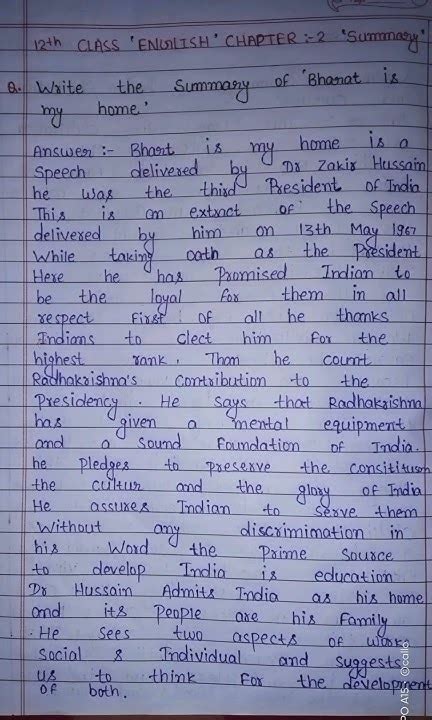 12th CLASS "ENGLISH" CHAPTER :- 2 "Summary"
Q. Write the Summary of 'Bharat is
my home.'
Answer :- Bhart is my home is a
Speech delivered by Dr Zakir Hussain
he was the third President of India
This is an extract of the Speech
delivered by him on 13th May 1967
While taking oath as the President
Here he has Promised Indian to
be the loyal for them in all
respect First of all he thanks
Indians to elect him for the
highest rank. Than he count
Radhakrishna's Contribution to the
Presidency. He says that Radhakrishna
has given a mental equipment
and a sound Foundation of India.
he pledges to preserve the consititution
the cultur and the glory of India
He assures Indian to serve them
Without any discrimimation in
his Word the Prime Source
to develop India is education
Dr Hussain Admits India as his home
and its People are his Family
. He Sees two aspects of work
Social & Individual and suggests
us to think For the development
of both.